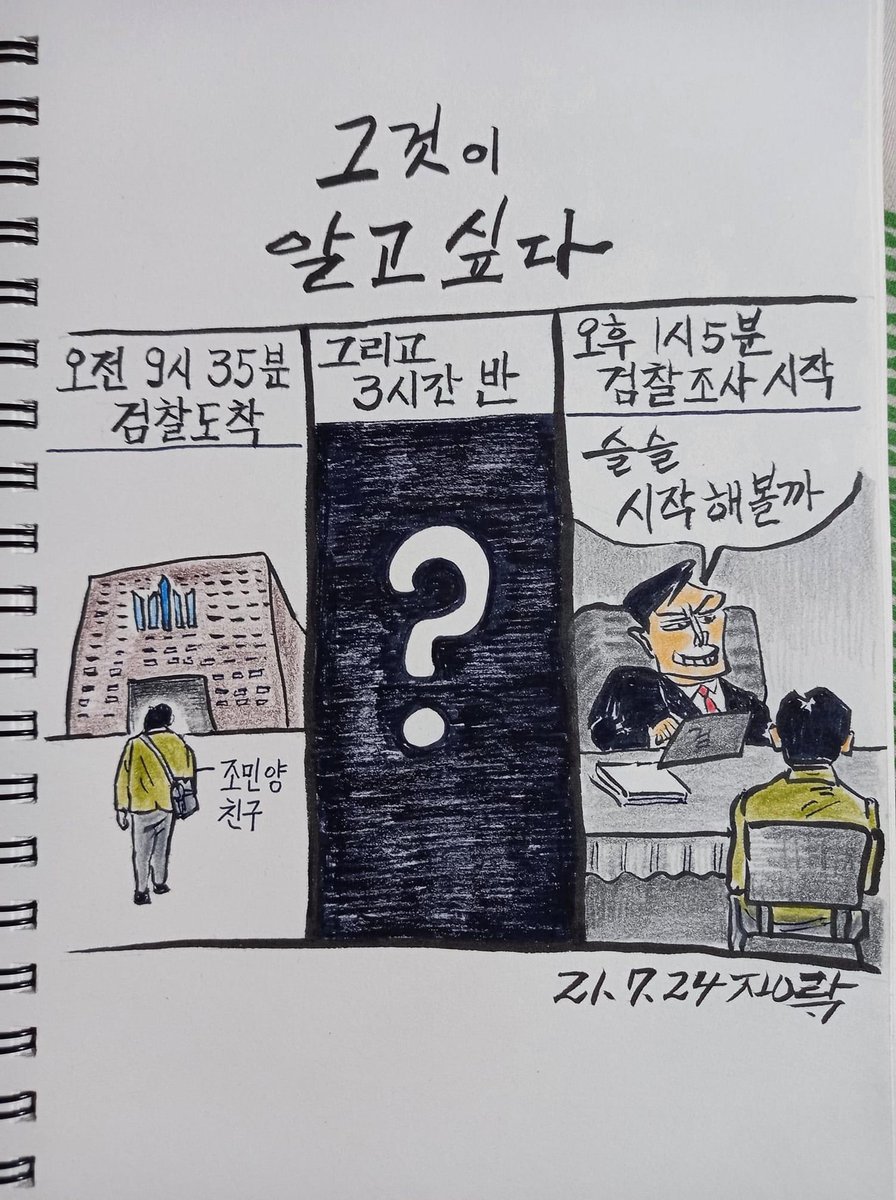 그것이
알고 싶다
오전 9시 35분
검찰도착
조민양
친구
그리고
3시간 반
?
오후 1시 5분
검찰조사 시작
슬슬
시작해볼까
21.7.24